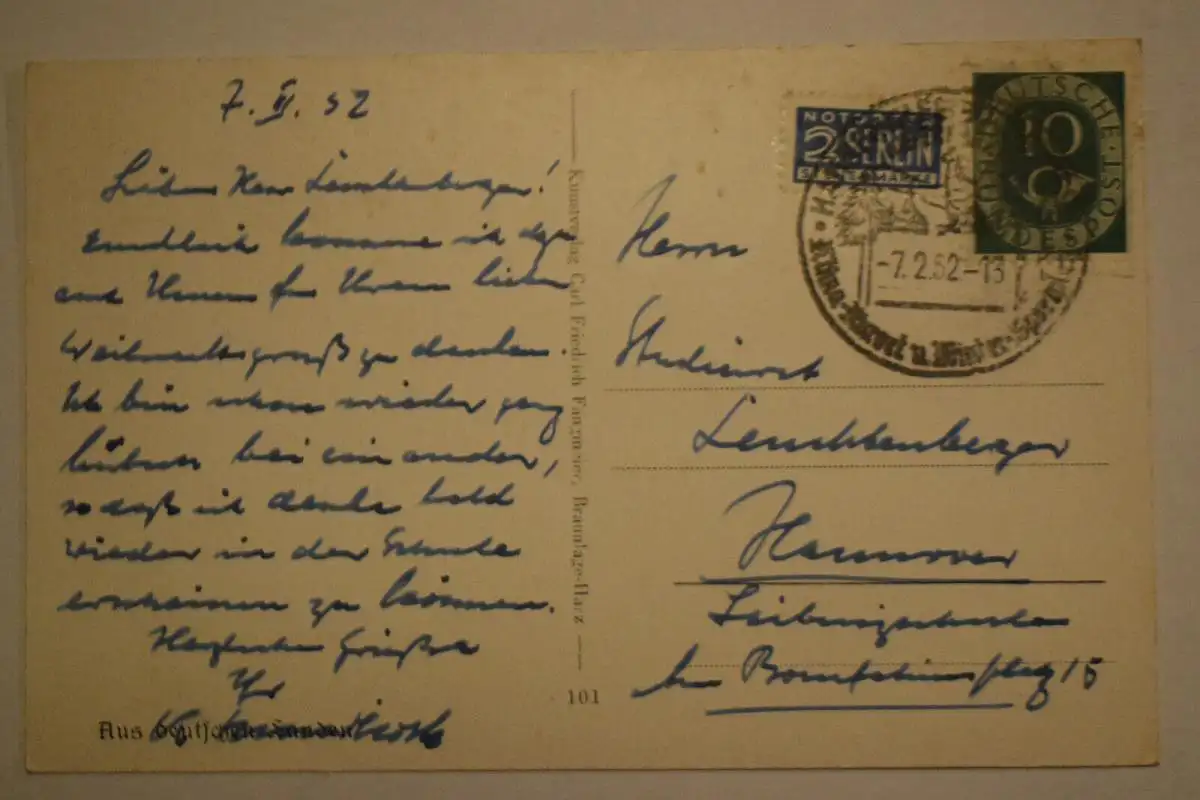 7. II. 52
Lieber Herr Leuchtenberger!
Endlich komme ich dazu
und Ihnen für Ihren lieben
Weihnachtsgruß zu danken.
Ich bin schon wieder ganz
hübsch bei einander,
so daß ich denke bald
wieder in der Schule
erscheinen zu können.
Herzlichen Grüßen
Ihr
Aus deutschen Landen
Kunstverlag Carl Friedrich Fangmeier, Braunlage-Harz
101
NOTOPFER
2 BERLIN
STEUERMARKE
10
DEUTSCHE BUNDESPOST
-7.2.52-13
Klima-Kurort u. Wintersport
Herrn
Studienrat
Leuchtenberger
Hannover
Leibnizschule
Am Bonifatiusplatz 15